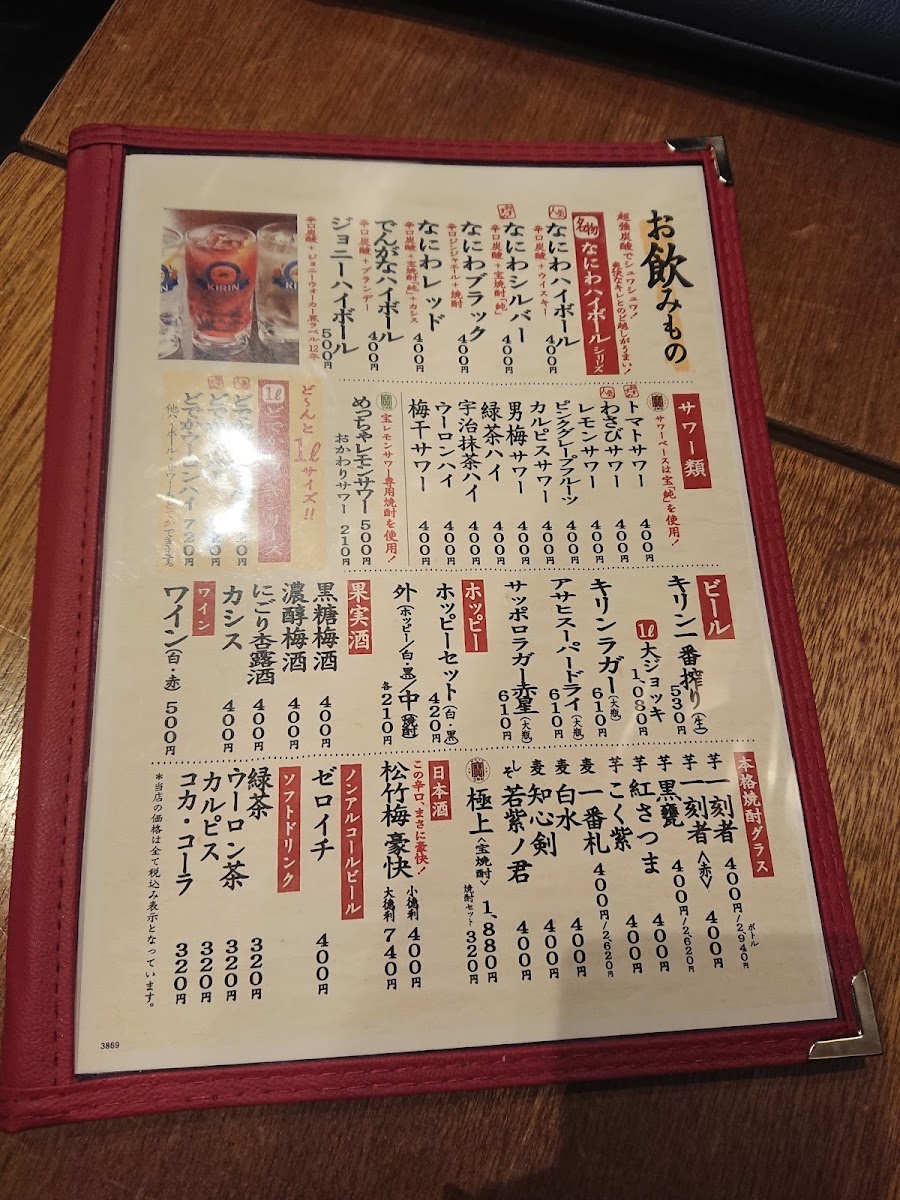 お飲みもの
超強炭酸でシュワシュワ!
爽快なキレとのど越しがうまい!
名物 なにわハイボールシリーズ
人気
なにわハイボール 400円
辛口炭酸+ウイスキー
なにわシルバー 400円
辛口炭酸+宝焼酎「純」
なにわブラック 400円
辛口ジンジャエール+焼酎
なにわレッド 400円
辛口炭酸+宝焼酎「純」+カシス
でんがなハイボール 400円
辛口炭酸+ブランデー
ジョニーハイボール 500円
辛口炭酸+ジョニーウォーカー黒ラベル12年
KIRIN
KIRIN
サワー類
サワーベースは宝「純」を使用!
トマトサワー 400円
わさびサワー 400円
レモンサワー 400円
ピンクグレープフルーツ 400円
カルピスサワー 400円
男梅サワー 400円
緑茶ハイ 400円
宇治抹茶ハイ 400円
ウーロンハイ 400円
梅干サワー 400円
宝レモンサワー専用焼酎を使用!
めっちゃレモンサワー 500円
おかわりサワー 210円
ど〜んと1ℓサイズ!!
1ℓ
どでかウーロンハイ 720円
ビール
キリン一番搾り(生) 530円
1ℓ 大ジョッキ 1,080円
キリンラガー(大瓶) 610円
アサヒスーパードライ(大瓶) 610円
サッポロラガー赤星(大瓶) 610円
ホッピー
ホッピーセット(白・黒) 420円
外(ホッピー/白・黒)/中(焼酎) 各210円
果実酒
黒糖梅酒 400円
濃醇梅酒 400円
にごり杏露酒 400円
カシス 400円
ワイン
ワイン(白・赤) 500円
本格焼酎グラス
ボトル
芋 一刻者 400円/2,940円
芋 一刻者<赤> 400円
芋 黒甕 400円/2,620円
芋 紅さつま 400円
芋 こく紫 400円
麦 一番札 400円/2,620円
麦 白水 400円
麦 知心剣 400円
しそ 若紫ノ君 400円
極上<宝焼酎> 1,880円
焼酎セット 320円
日本酒
この辛口、まさに豪快!
松竹梅 豪快
小徳利 400円
大徳利 740円
ノンアルコールビール
ゼロイチ 400円
ソフトドリンク
緑茶 320円
ウーロン茶 320円
カルピス 320円
コカ・コーラ 320円
*当店の価格は全て税込み表示となっています。
3869